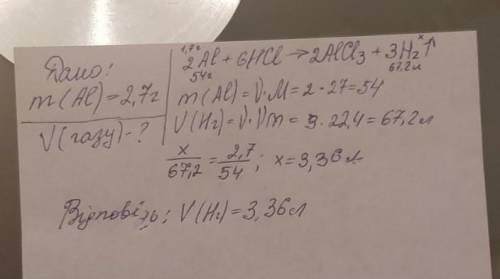 Дано:
m(Al)=2,7г
V(газу)-?
1,7г x
2Al + 6HCl → 2AlCl₃ + 3H₂↑
54г 67,2л
m(Al) = ν·M = 2·27 = 54
V(H₂) = ν·Vm = 3·22,4 = 67,2л
x/67,2 = 2,7/54; x = 3,36л
Відповідь: V(H₂) = 3,36л